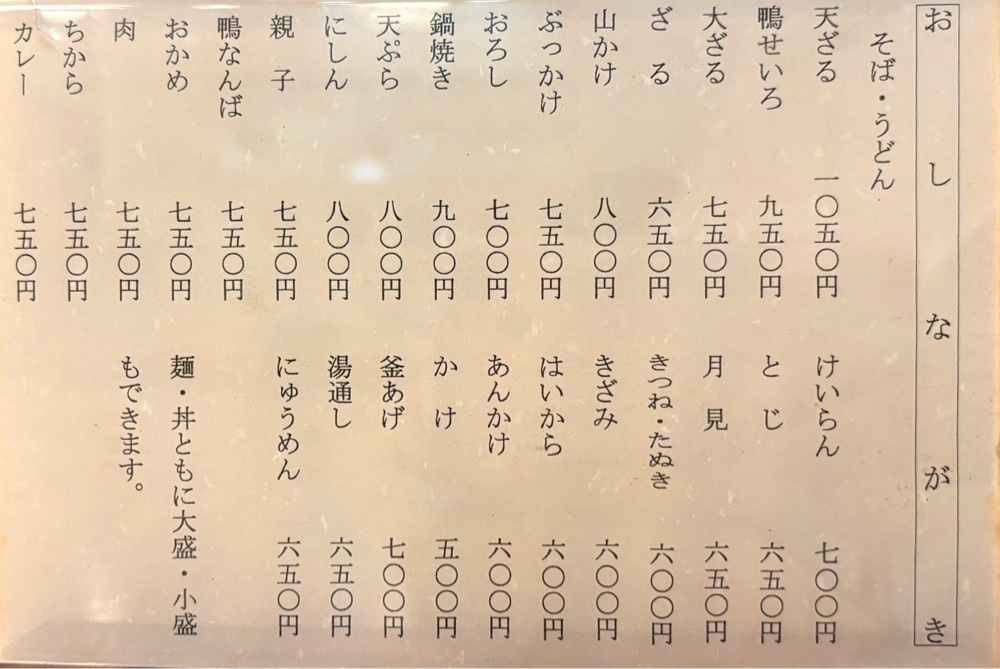 おしながき
そば・うどん
天ざる 一〇五〇円
鴨せいろ 九五〇円
大ざる 七五〇円
ざる 六五〇円
山かけ 八〇〇円
ぶっかけ 七五〇円
おろし 七〇〇円
鍋焼き 九〇〇円
天ぷら 八〇〇円
にしん 八〇〇円
親子 七五〇円
鴨なんば 七五〇円
おかめ 七五〇円
肉 七五〇円
ちから 七五〇円
カレー 七五〇円
けいらん 七〇〇円
とじ 六五〇円
月見 六五〇円
きつね・たぬき 六〇〇円
きざみ 六〇〇円
はいから 六〇〇円
あんかけ 六〇〇円
かけ 五〇〇円
釜あげ 七〇〇円
湯通し 六五〇円
にゅうめん 六五〇円
麺・丼ともに大盛・小盛
もできます。